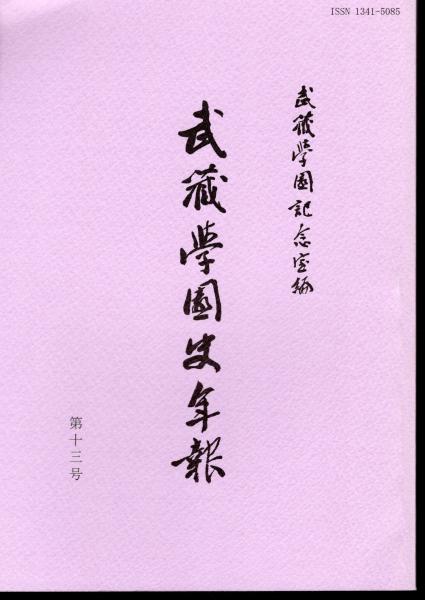 ISSN 1341-5085
武蔵學園記念室編
武蔵學園史年報
第十三号